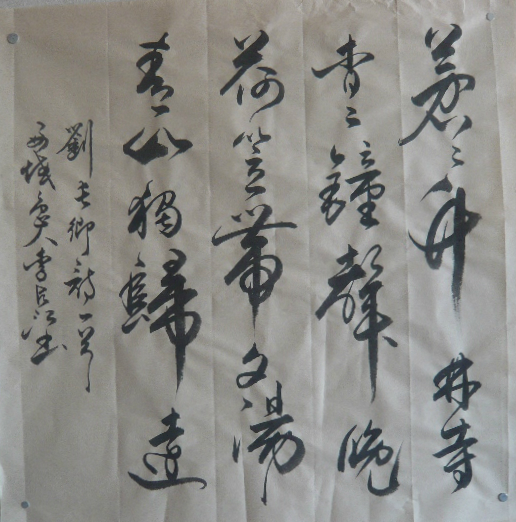 蒼〻竹林寺
杳〻鐘聲晚
荷笠帶夕陽
青山獨歸遠
劉長卿詩一首
人李長江书